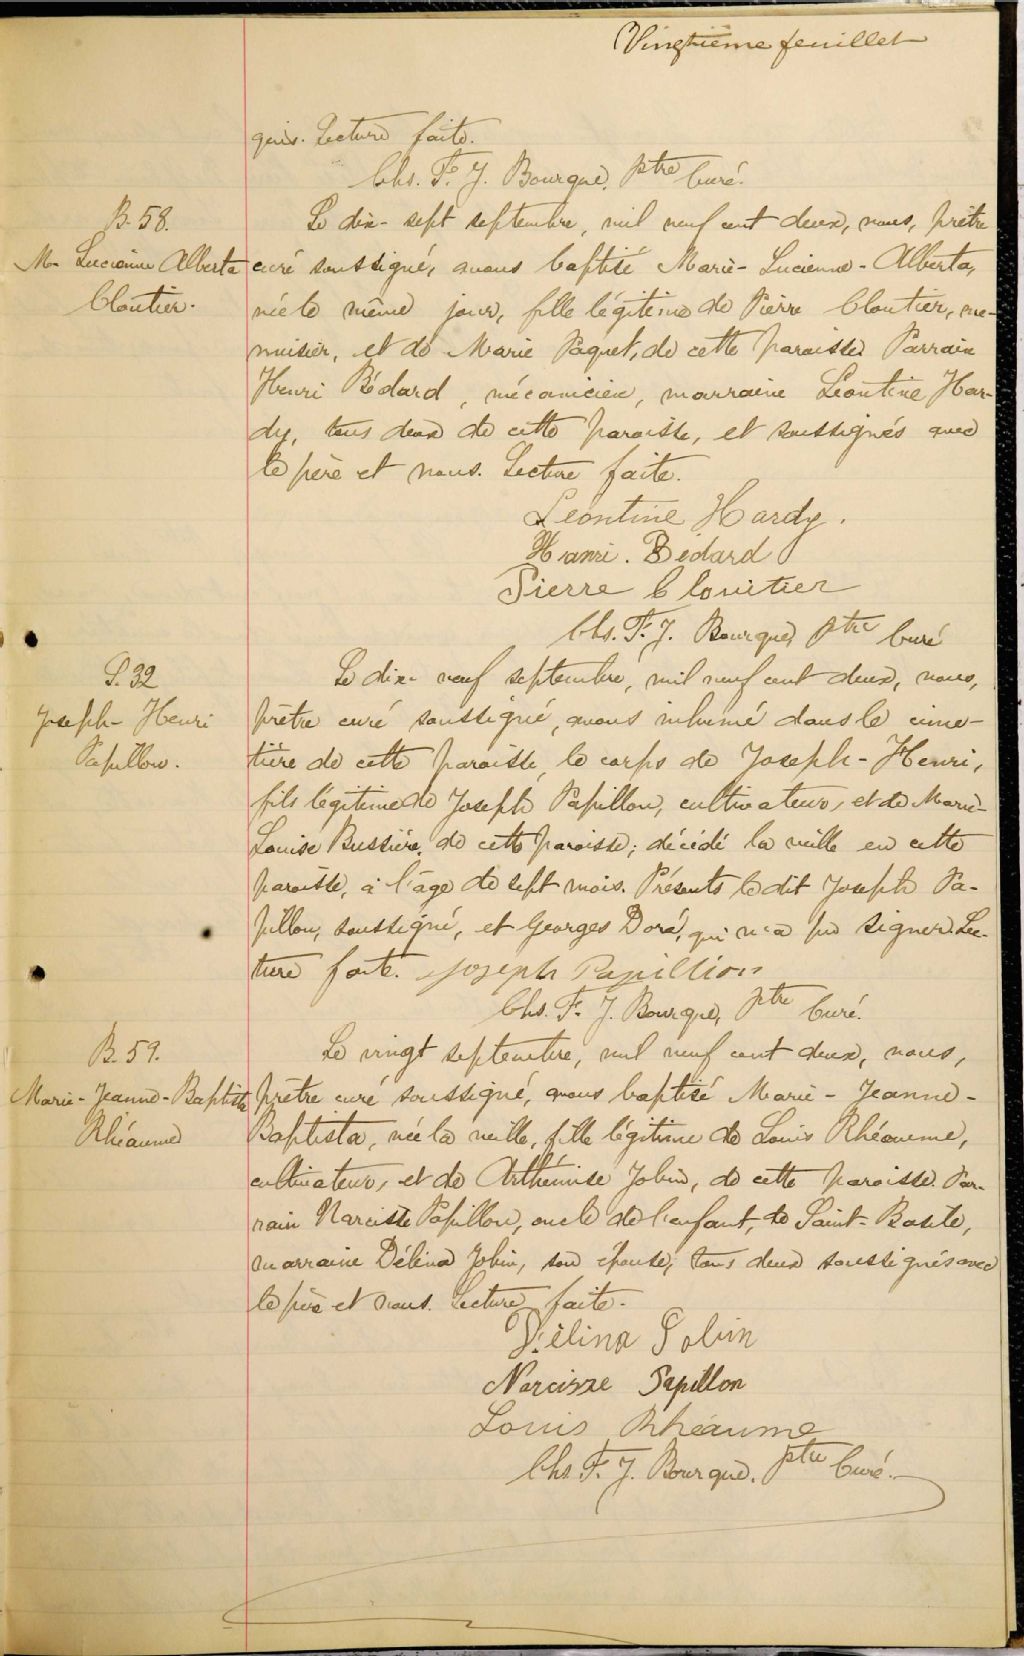 Vingtième feuillet
quis. Lecture faite.
Chs. F. J. Bourque, ptre Curé.
B. 58.
M- Lucienne Alberta
Cloutier.
Le dix-sept septembre, mil neuf cent deux, nous, prêtre
curé soussigné, avons baptisé Marie-Lucienne-Alberta,
née le même jour, fille légitime de Pierre Cloutier, me-
nuisier, et de Marie Paquet, de cette paroisse. Parrain
Henri Bédard, mécanicien, marraine Léontine Har-
dy, tous deux de cette paroisse, et soussignés avec
le père et nous. Lecture faite.
Léontine Hardy.
Hanri. Bédard
Pierre Clouitier
Chs. F. J. Bourque, ptre Curé
S. 32
Joseph-Henri
Papillon.
Le dix-neuf septembre, mil neuf cent deux, nous,
prêtre curé soussigné, avons inhumé dans le cime-
tière de cette paroisse, le corps de Joseph-Henri,
fils légitime de Joseph Papillon, cultivateur, et de Marie-
Louise Bussière, de cette paroisse; décédé la veille en cette
paroisse, à l'âge de sept mois. Présents le dit Joseph Pa-
pillon, soussigné, et Georges Doré, qui n'a pu signer. Lec-
ture faite. Joseph Papillion
Chs. F. J. Bourque, ptre Curé.
B. 59.
Marie-Jeanne-Baptista
Rhéaume
Le vingt septembre, mil neuf cent deux, nous,
prêtre curé soussigné, avons baptisé Marie-Jeanne-
Baptista, née la veille, fille légitime de Louis Rhéaume,
cultivateur, et de Arthémise Jobin, de cette paroisse. Par-
rain Narcisse Papillon, oncle de l'enfant, de Saint-Basile,
marraine Délina Jobin, son épouse; tous deux soussignés avec
le père et nous. Lecture faite.
Délina Jobin
Narcisse Papillon
Louis Rhéaume
Chs F. J. Bourque, ptre Curé.